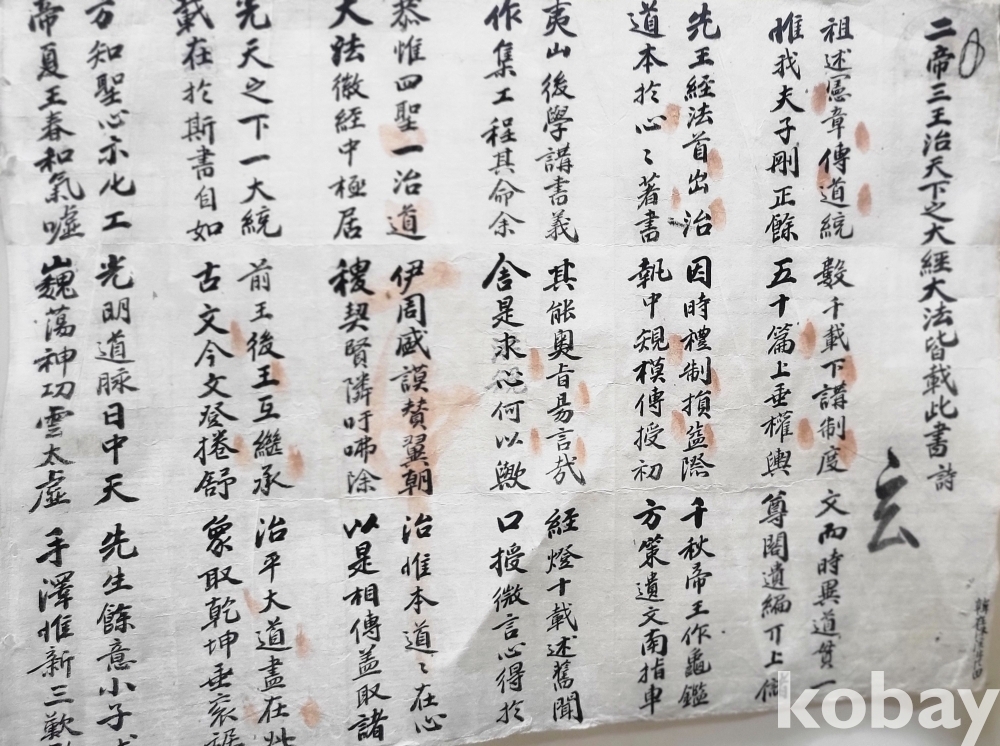 二帝三王治天下之大經大法皆載此書 詩
祖述憲章傳道統 數千載下講制度 文而時異道貫一
惟我夫子剛正餘 五十篇上垂權輿 尊閣遺編丌上
先王經法首出治 因時禮制損益際 千秋帝王作龜鑑
道本於心〻著書 執中規模傳授初 方策遺文南指車
夷山後學講書義 其能奧旨易言哉 經燈十載述舊聞
作集工程其命余 舍是求心何以歟 口授微言心得於
恭惟四聖一治道 伊周盛謨贊翼朝 治惟本道〻在心
大法微經中極居 稷契賢隣吁咈除 以是相傳盖取諸
先天之下一大統 前王後王互繼承 治平大道盡在此
載在於斯書自如 古文今文登捲舒 象取乾坤垂衣裾
方知聖心示化工 光明道脉日中天 先生餘意小子
帝夏王春和氣噓 巍蕩神功雲太虛 手澤惟新三歎
kobay